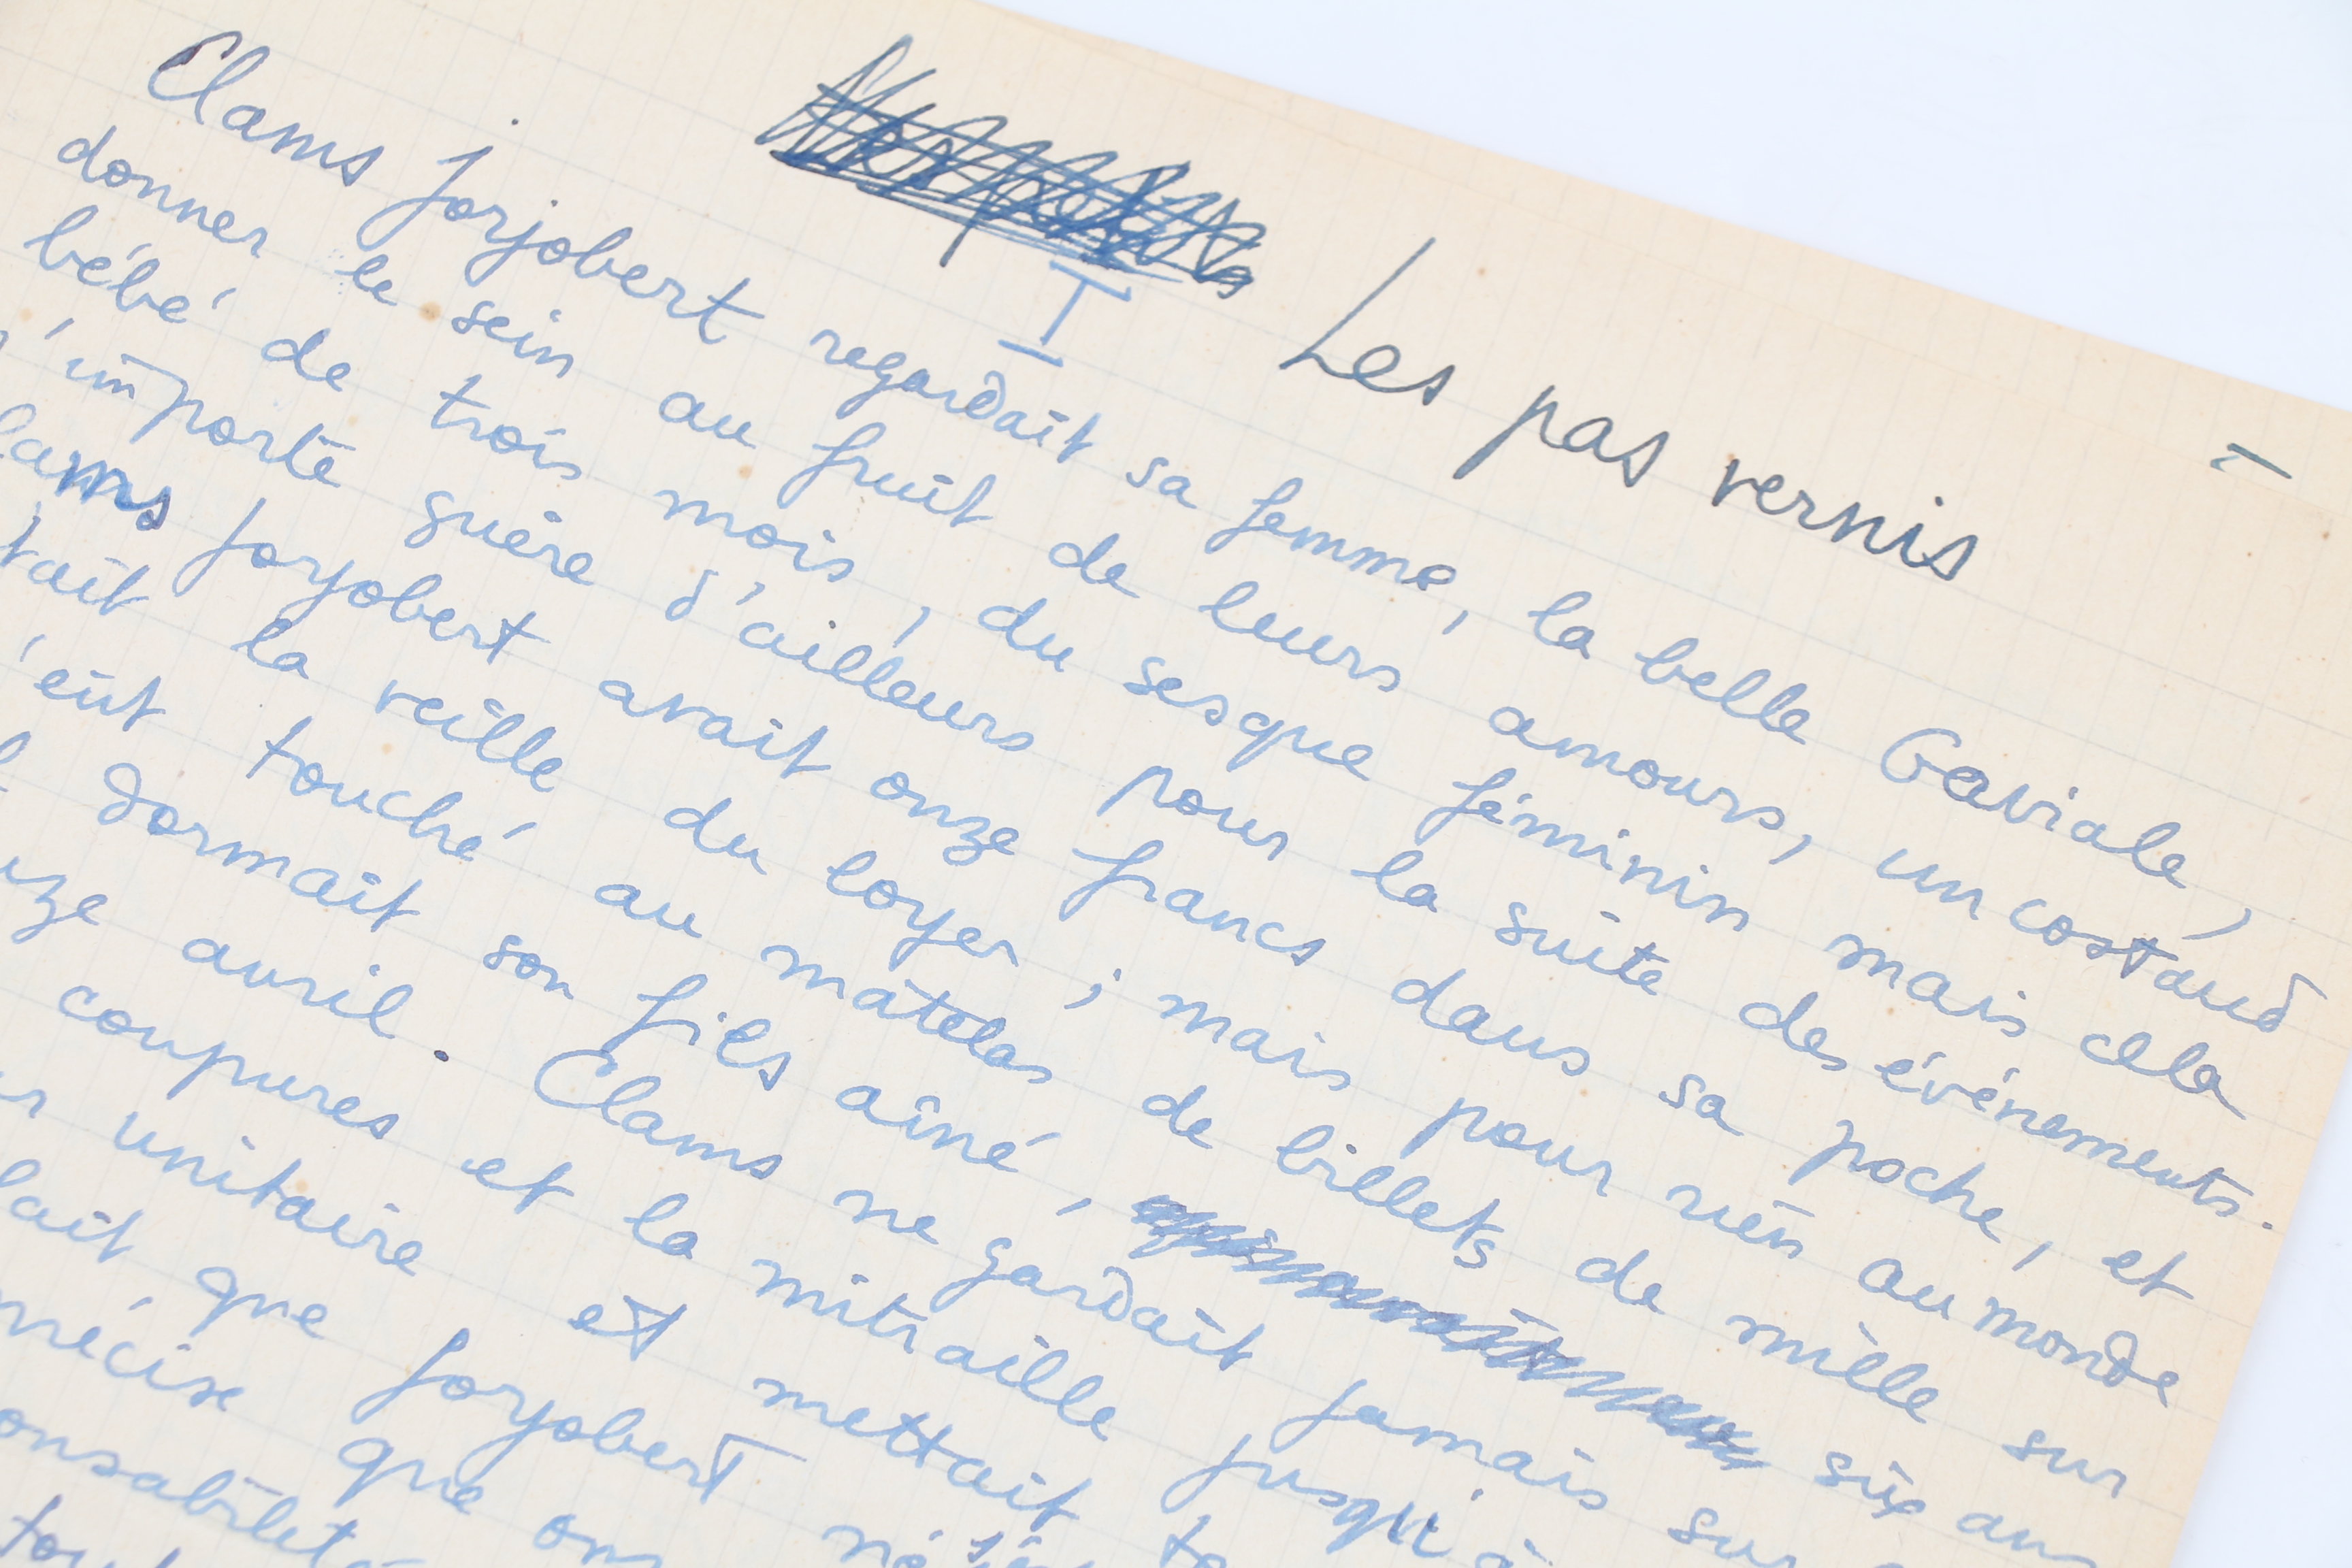 Les pas vernis =
I
Clams Jorjobert regardait sa femme, la belle Gaviale,
donner le sein au fruit de leurs amours, un costaud
bébé de trois mois, du sesque féminin mais cela
'importe guère d'ailleurs pour la suite des événements.
lams Jorjobert avait onze francs dans sa poche, et
tait la veille du loyer ; mais pour rien au monde
'eût touché au matelas de billets de mille sur
dormait son fils aîné, six ans
avril. Clams ne gardait jamais sur
coupures et la mitraille jusqu'à
unitaire et mettait
lait, que Jorjobert
que
onsabilité